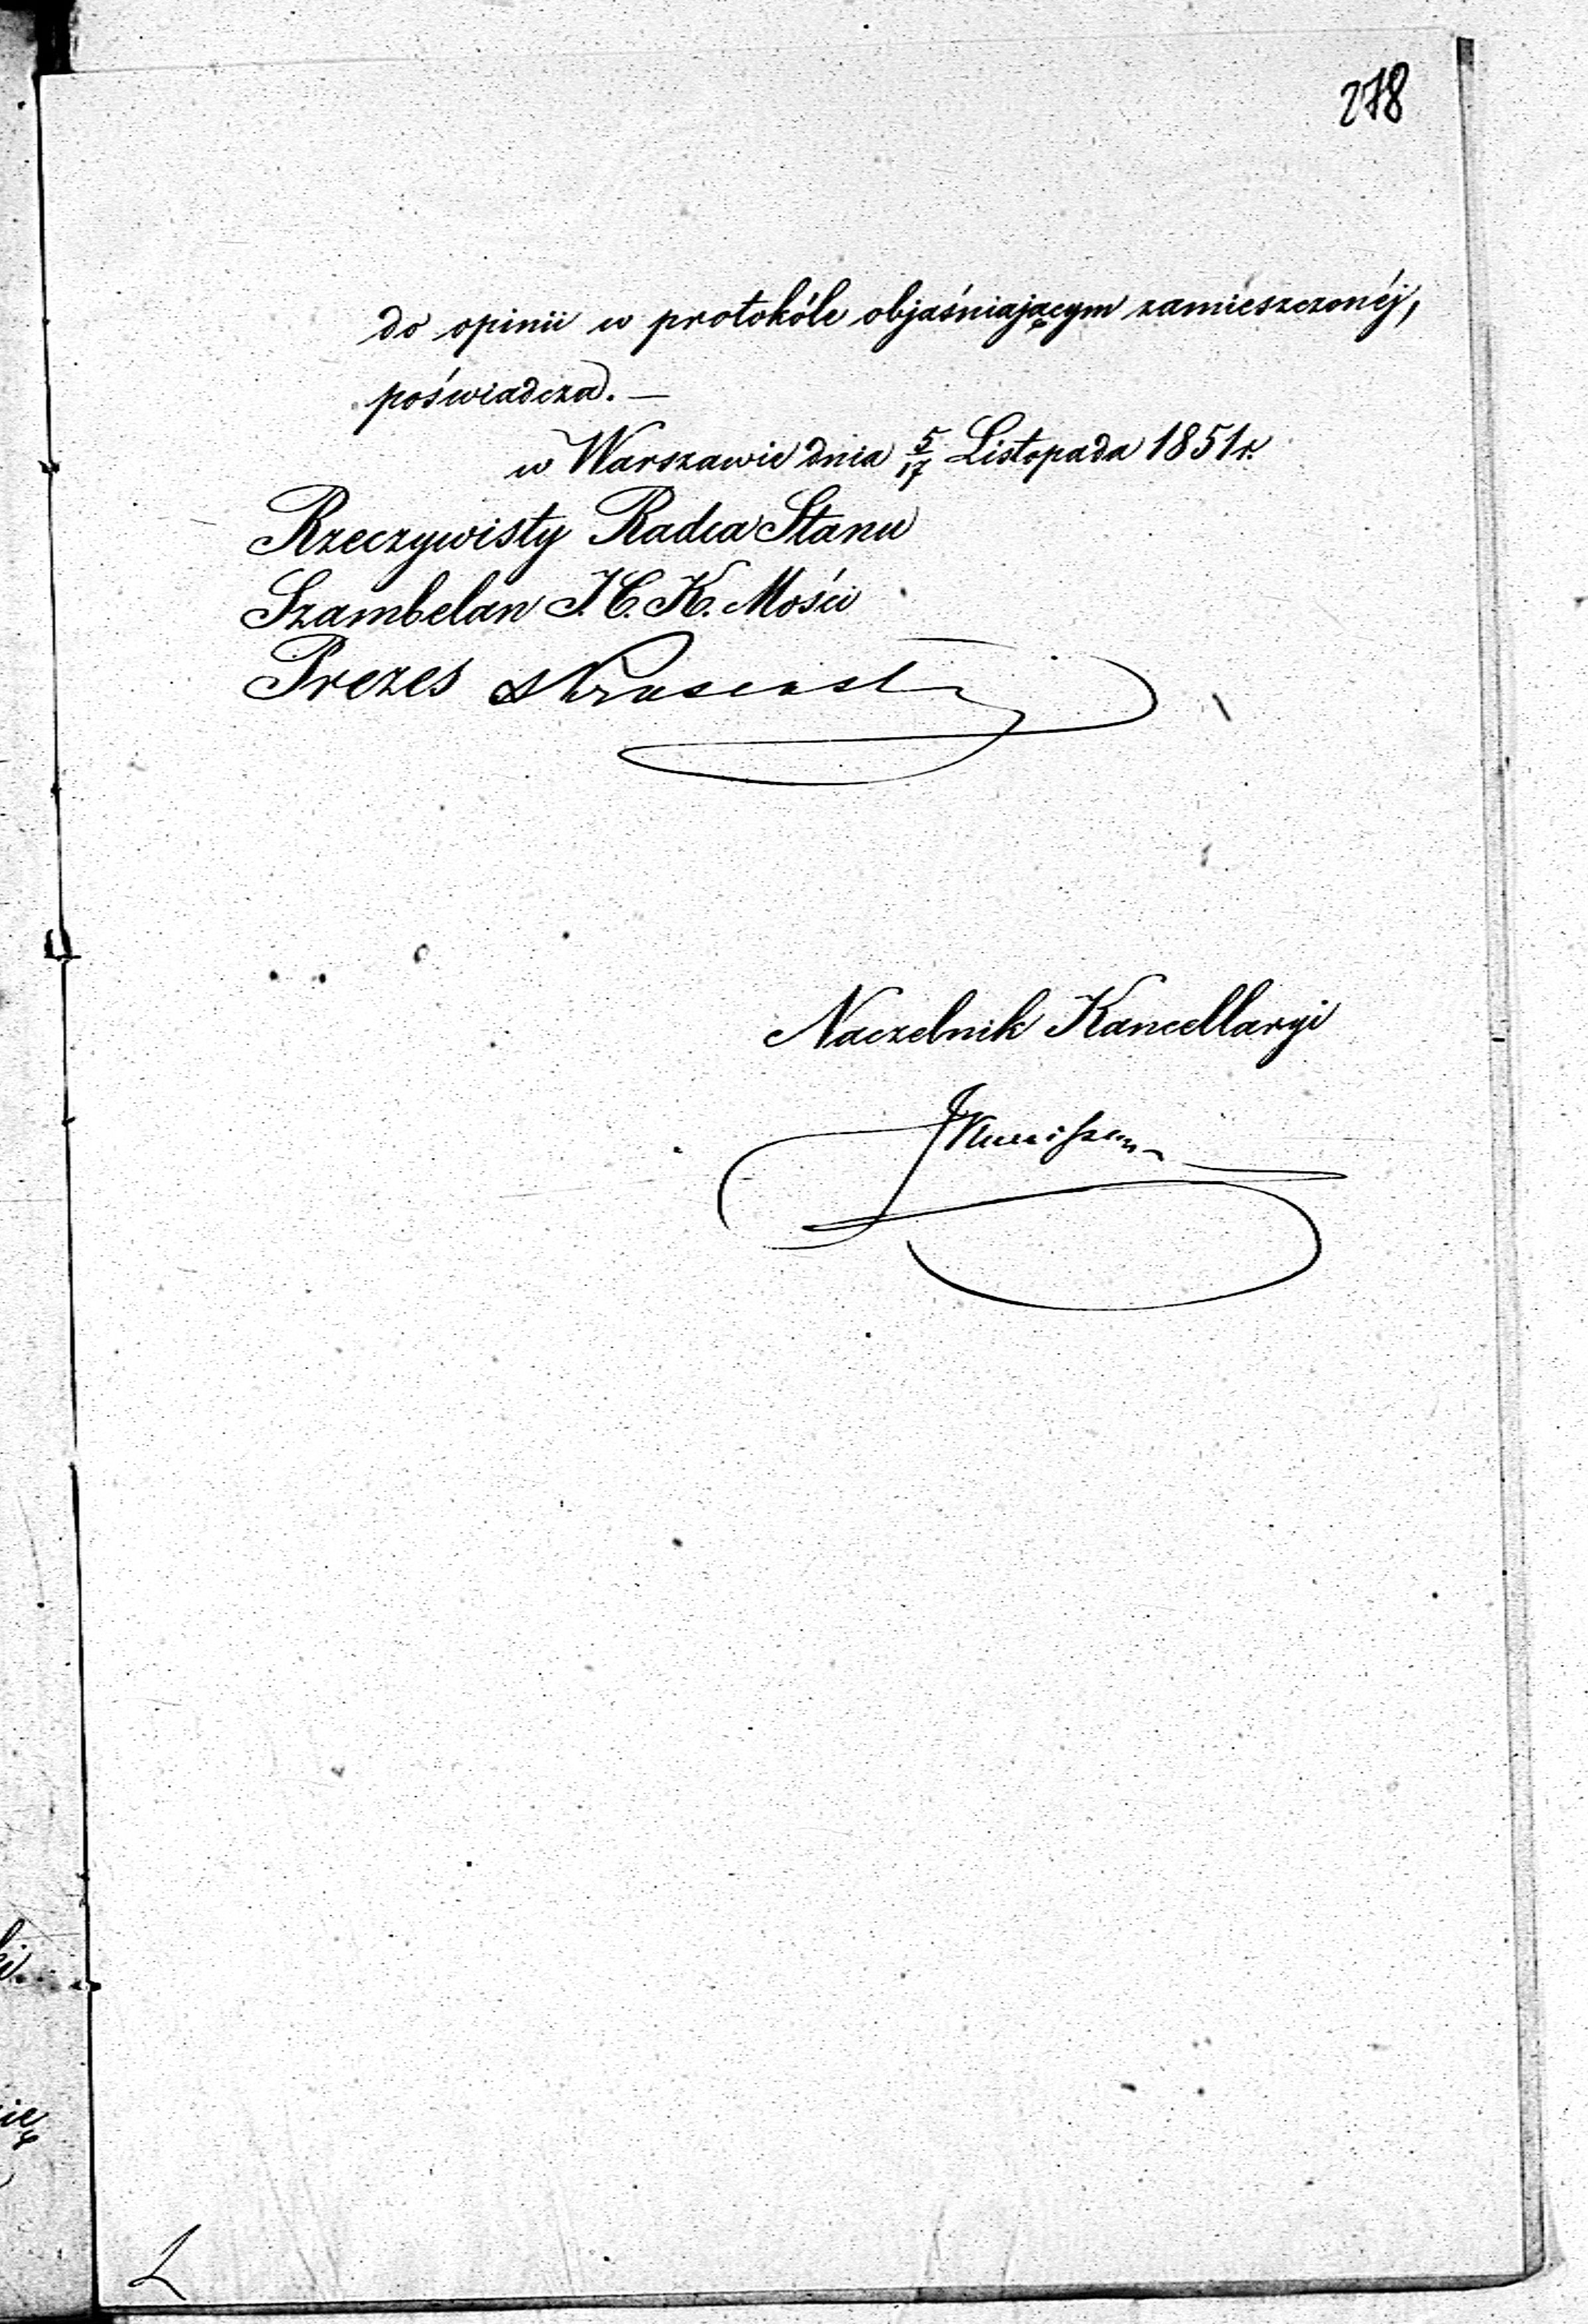 278
do opinii w protokóle objaśniającym zamieszczonéj,
poświadcza. —
w Warszawie dnia 5/17 Listopada 1851 r.
Rzeczywisty Radca Stanu
Szambelan J. C. K. Mości
Prezes
Naczelnik Kancellaryi